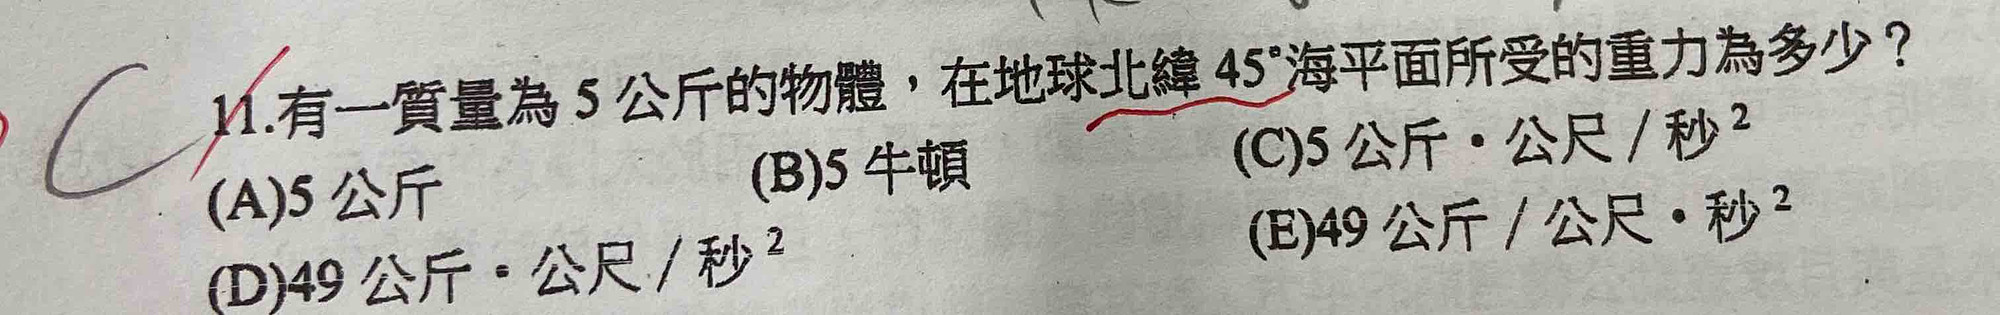 C
11.有一質量為 5 公斤的物體，在地球北緯 45°海平面所受的重力為多少？
(A)5 公斤 (B)5 牛頓 (C)5 公斤・公尺 / 秒²
(D)49 公斤・公尺 / 秒² (E)49 公斤 / 公尺・秒²